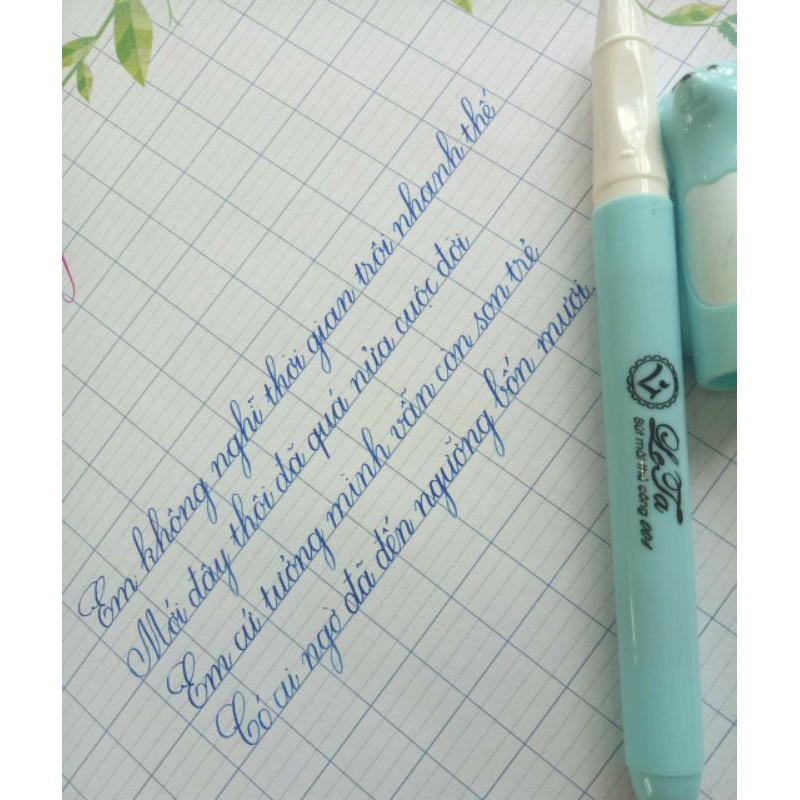 Em không nghĩ thời gian trôi nhanh thế
Mới đây thôi đã quá nửa cuộc đời
Em cứ tưởng mình vẫn còn son trẻ
Có ai ngờ đã đến ngưỡng bốn mươi
LaTa
Bút mài thủ công 001